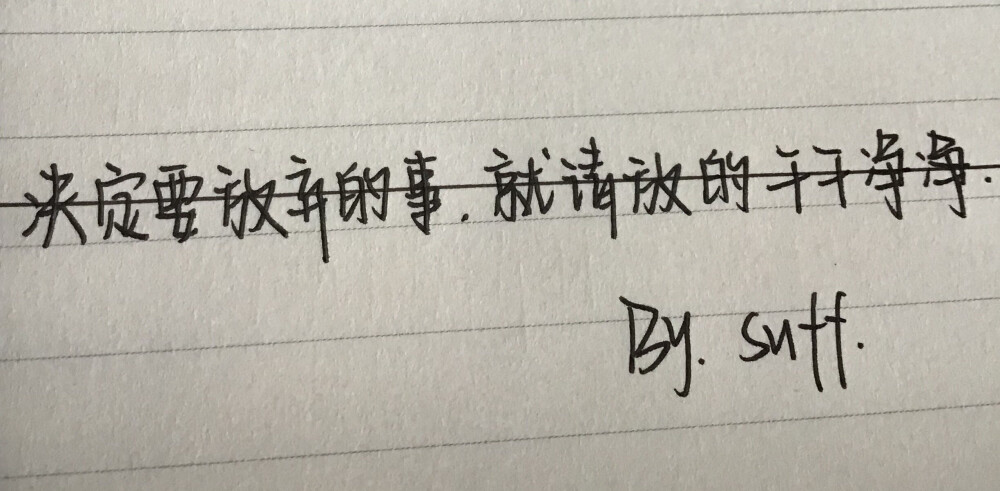 决定要放弃的事.就请放的干干净净.
By. suft.